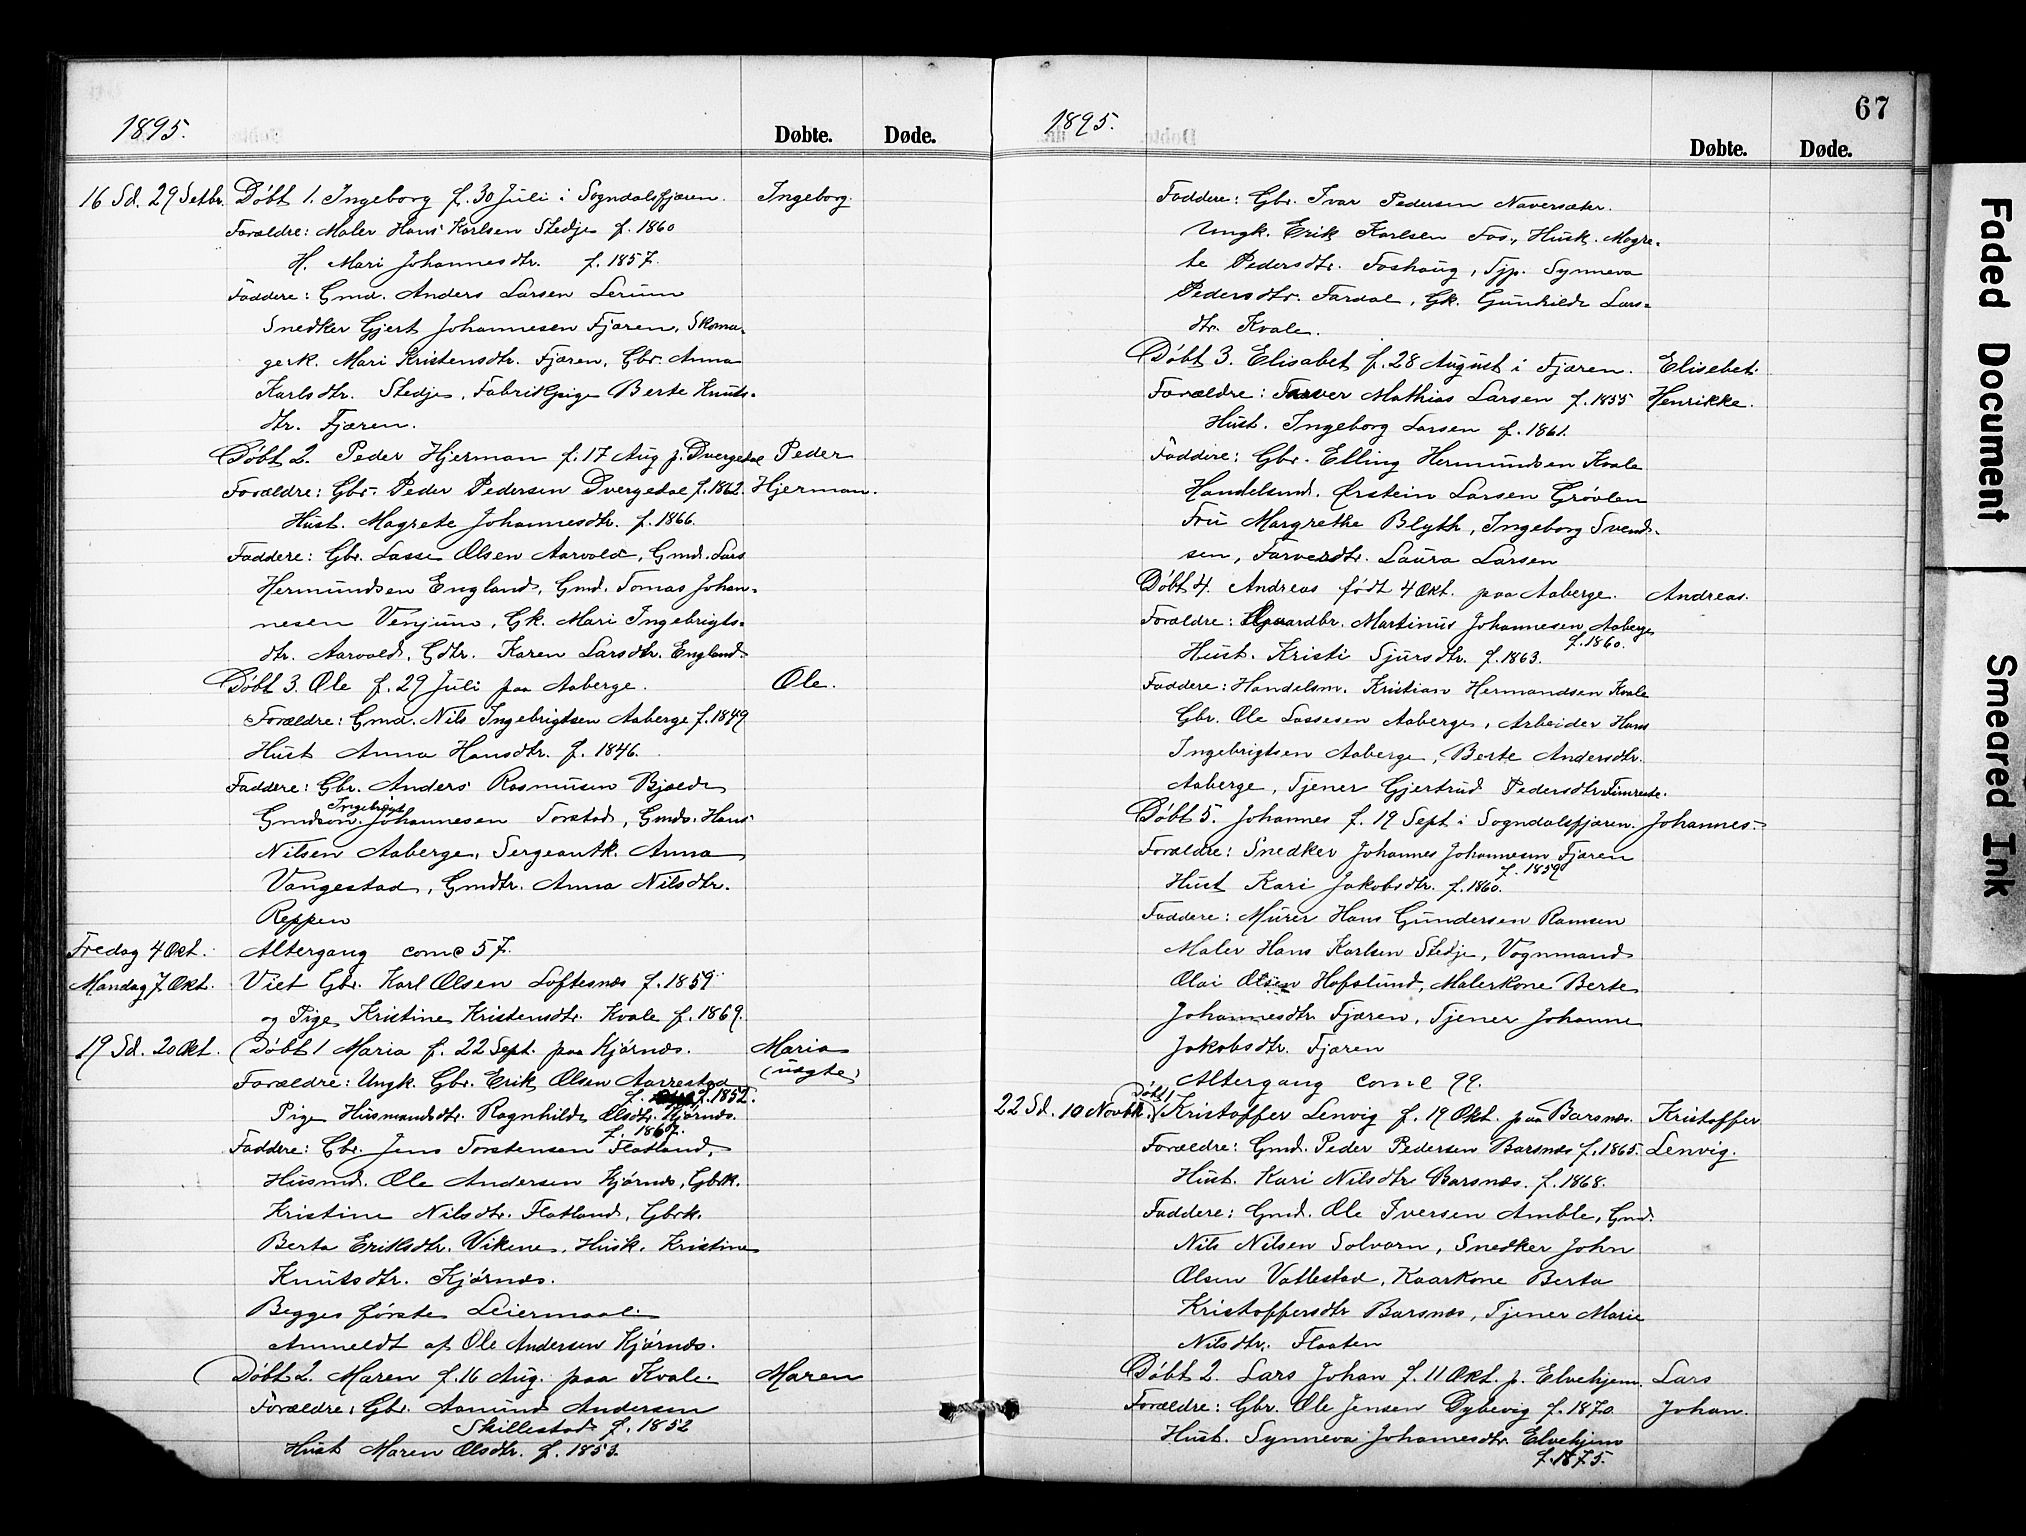 1895.
Døbte. Døde.
16 Sd. 29 Setbr. Døbt 1. Ingeborg f. 30 Juli i Sogndalsfjæren. Ingeborg.
Forældre: Maler Hans Karlsen Stedje f. 1860
H. Mari Johannesdtr. f. 1857.
Faddere: Gmd. Anders Larsen Lerum
Snedker Gjert Johannesen Fjæren, Skoma-
gerk. Mari Kristensdtr. Fjæren, Gbr. Anna
Karlsdtr. Stedje, Fabrikpige Berte Knuts-
dtr. Fjæren.
Døbt 2. Peder Hjerman f. 17 Aug p. Dvergedal Peder
Forældre: Gbr. Peder Pedersen Dvergedal f. 1862. Hjerman.
Hust. Magrete Johannesdtr. f. 1866.
Faddere: Gbr. Lasse Olsen Aarvold, Gmd. Lars
Hermundsen England, Gmd. Tomas Johan-
nesen Venjum, Gk. Mari Ingebrigts-
dtr. Aarvold, Gdtr. Karen Larsdtr. England.
Døbt 3. Ole f. 29 Juli paa Aaberge. Ole.
Forældre: Gmd. Nils Ingebrigtsen Aaberge f. 1849
Hust Anna Hansdtr. f. 1846.
Faddere: Gbr. Anders Rasmusen Bjælde
Gmdsøn. Ingebrigt Johannesen Torstad, Gmds. Hans
Nilsen Aaberge, Sergeantk. Anna
Vangestad, Gmdtr. Anna Nilsdtr.
Reppen
Fredag 4 Okt. Altergang come 57.
Mandag 7 Okt. Viet Gbr. Karl Olsen Loftesnæs f. 1859.
og Pige Kristine Kristensdtr. Kvale f. 1869.
19 Sd. 20 Okt. Døbt 1 Maria f. 22 Sept. paa Kjørnæs. Maria
(uægte)
Forældre: Ungk. Gbr. Erik Olsen Aarrestad
f. 1852.
Pige Husmandsdtr. Ragnhilde Olsdtr. Kjørnæs.
f. 1867.
Faddere: Gbr. Jens Torstensen Flatland,
Husmd. Ole Andersen Kjørnæs, Gbrk.
Kristine Nilsdtr. Flatland, Gbrk.
Berta Eriksdtr. Vikene, Husk. Kristine
Knutsdtr. Kjørnæs.
Begges første Leiermaal.
Anmeldt af Ole Andersen Kjørnæs.
Døbt 2. Maren f. 16 Aug. paa Kvale. Maren
Forældre: Gbr. Aamund Andersen
Skillestad f. 1852
Hust Maren Olsdtr. f. 1853.
1895. 67
Døbte. Døde.
Faddere: Gbr. Ivar Pedersen Navarsæter.
Ungk. Erik Karlsen Fos., Husk. Magre-
te Pedersdtr. Foshaug, Tjp. Synneva
Pedersdtr. Fardal, Gk. Gunhilde Lars-
dtr. Kvale.
Døbt 3. Elisabet f. 28 August i Fjæren. Elisebet
Forældre: Farver Mathias Larsen f. 1855 Henrikke.
Hust. Ingeborg Larsen f. 1861.
Faddere: Gbr. Elling Hermundsen Kvale
Handelsmd. Ørstein Larsen Grøvlen
Fru Margrethe Blyth, Ingeborg Svend-
sen, Farverdtr. Laura Larsen
Døbt 4. Andreas født 4 Okt. paa Aaberge. Andreas.
Forældre: Gaardbr. Martinus Johannesen Aaberge
f. 1860.
Hust. Kristi Sjursdtr. f. 1863.
Faddere: Handelsm. Kristian Hermandsen Kvale
Gbr. Ole Lassesen Aaberge, Arbeider Hans
Ingebrigtsen Aaberge, Berte Andersdtr.
Aaberge, Tjener Gjertrud Pedersdtr. Fimreite.
Døbt 5. Johannes f. 19 Sept i Sogndalsfjæren. Johannes.
Forældre: Snedker Johannes Johannesen Fjæren
f. 1859
Hust Kari Jakobsdtr. f. 1860.
Faddere: Murer Hans Gundersen Ramsen
Maler Hans Karlsen Stedje, Vognmand
Olai Olsen Hofslund, Malerkone Berte
Johannesdtr Fjæren, Tjener Johanne
Jakobsdtr. Fjæren
Altergang come 99.
22 Sd. 10 Novbr. Døbt 1 Kristoffer Lenvig f. 19 Okt. paa Barsnæs. Kristoffer
Forældre: Gmd. Peder Pedersen Barsnæs f. 1865. Lenvig.
Hust. Kari Nilsdtr Barsnæs. f. 1868.
Faddere: Gmd. Ole Iversen Amble, Gmd.
Nils Nilsen Solvorn, Snedker John
Olsen Vallestad, Kaarkone Berta
Kristoffersdtr Barsnæs, Tjener Marie
Nilsdtr. Flaaten
Døbt 2. Lars Johan f. 11 Okt. p. Elvehjem. Lars
Forældre: Gbr. Ole Jensen Dybevig f. 1870. Johan.
Hust. Synneva Johannesdtr. Elvehjem
f. 1875.
Faded Document
Smeared Ink